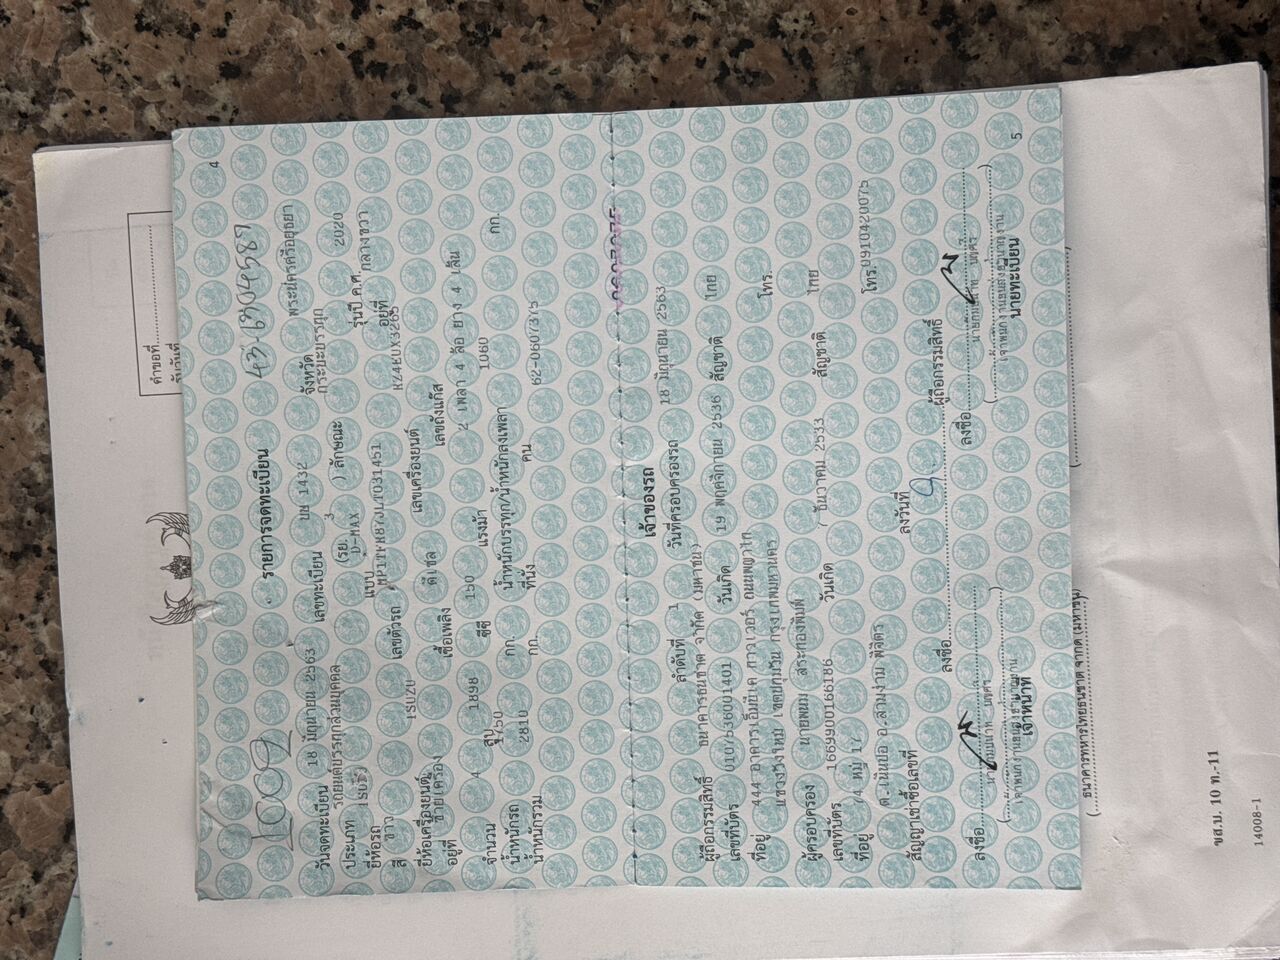 4
1002
43-1304587
รายการจดทะเบียน
วันจดทะเบียน 18 มิถุนายน 2563 เลขทะเบียน บษ 1432 จังหวัด พระนครศรีอยุธยา
ประเภท รถยนต์บรรทุกส่วนบุคคล (รย. 3 ) ลักษณะ กระบะบรรทุก
ยี่ห้อรถ ISUZU แบบ D-MAX รุ่นปี ค.ศ. 2020
สี ขาว เลขตัวรถ อยู่ที่ กลางขวา
ยี่ห้อเครื่องยนต์ ISUZU เลขเครื่องยนต์ RZ4EUX3265
อยู่ที่ ซ้ายเครื่อง เชื้อเพลิง ดีเซล เลขถังแก๊ส
จำนวน 4 สูบ 1898 ซีซี 150 แรงม้า 2 เพลา 4 ล้อ ยาง 4 เส้น
น้ำหนักรถ 1750 กก. น้ำหนักบรรทุก/น้ำหนักลงเพลา 1060 กก.
น้ำหนักรวม 2810 กก. ที่นั่ง คน 62-0607375
เจ้าของรถ
ลำดับที่ 1 วันที่ครอบครองรถ 18 มิถุนายน 2563
ผู้ถือกรรมสิทธิ์ ธนาคารธนชาต จำกัด (มหาชน)
เลขที่บัตร 0107536001401 วันเกิด 19 พฤศจิกายน 2536 สัญชาติ ไทย
ที่อยู่ 444 อาคารเอ็มบีเค ทาวเวอร์ ถนนพญาไท
แขวงวังใหม่ เขตปทุมวัน กรุงเทพมหานคร โทร.
ผู้ครอบครอง นายพนม
เลขที่บัตร 1669900166186 วันเกิด 7 ธันวาคม 2533 สัญชาติ ไทย
ที่อยู่ 74 หมู่ 17
ต.เนินปอ อ.สามง่าม พิจิตร โทร.0910420075
สัญญาเช่าซื้อเลขที่ ลงวันที่
ลงชื่อ ผู้ถือกรรมสิทธิ์
ลงชื่อ ลงชื่อ
เจ้าหน้าที่ นายทะเบียน
5
คำขอที่
รับวันที่
ธนาคารทหารไทยธนชาต จำกัด (มหาชน)
ขส.บ. 10 ท.-11
14008-1